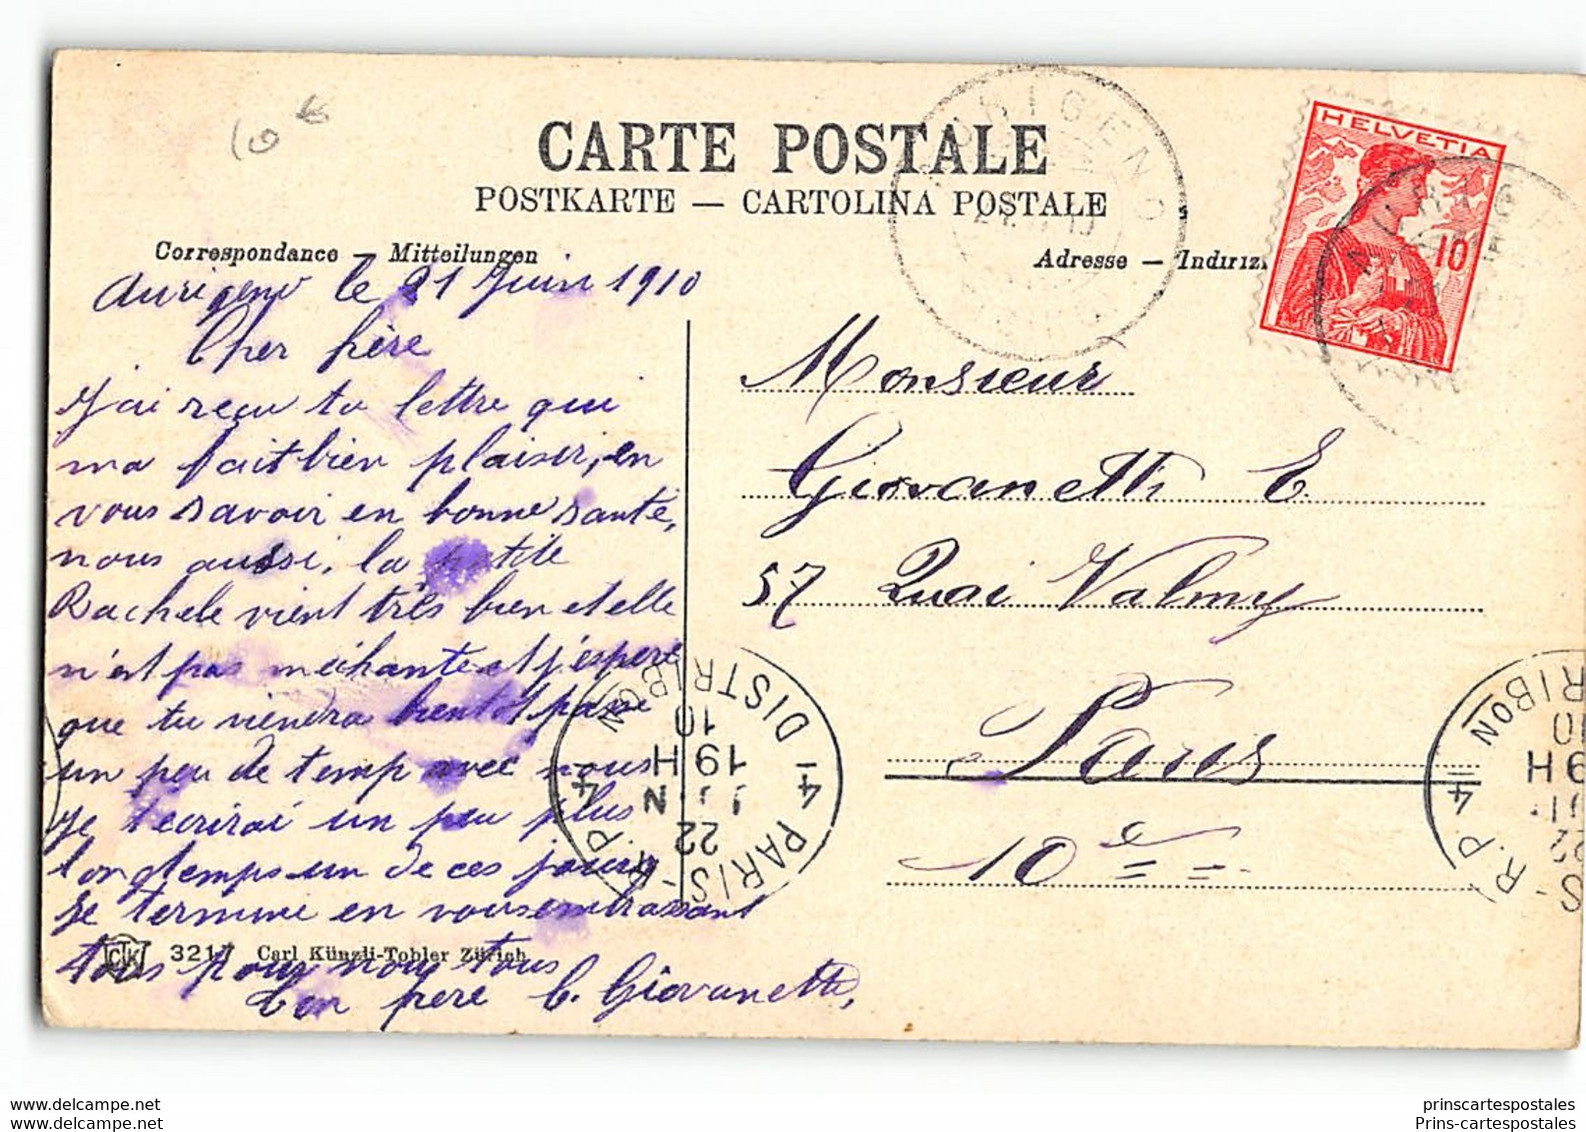 10 €
CARTE POSTALE
POSTKARTE — CARTOLINA POSTALE
Correspondance — Mitteilungen
Adresse — Indiriz
HELVETIA
10
AURIGENO
Aurigeno le 21 Juin 1910
Cher frère
J'ai reçu ta lettre qui
ma fait bien plaisir, en
vous savoir en bonne santé,
nous aussi, la petite
Rachele vient très bien et elle
n'est pas méchante et j'espere
que tu viendra bientot passé
un peu de temp avec nous
je t'ecrirai un peu plus
longtemps un de ces jours
Je termine en vous embrassant
tous pour nous tous
ton frere C. Giovanetti,
Monsieur
Giovanetti E.
57 Quai Valmy
Paris
10e
PARIS-R.P. 4 DISTRIBON
22
JUIN
19 H
10
3217 Carl Künzli-Tobler Zürich
prinscartespostales
https://www.delcampe.net
prinscartespostales
Prins-cartespostales.com